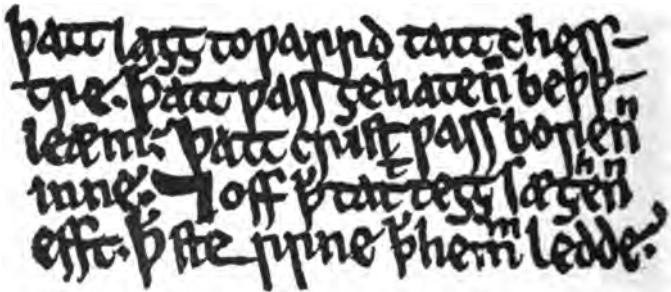 þatt laȝȝ toƿarrd tatt chess-
tre. þatt ƿass ȝehatenn beþþ-
leæm: þatt crist ƿass borenn
inne: ⁊ off þ̕ tatt teȝȝ sæȝhenn
efft. þ̕ sterrne þ̕ hemm ledde.